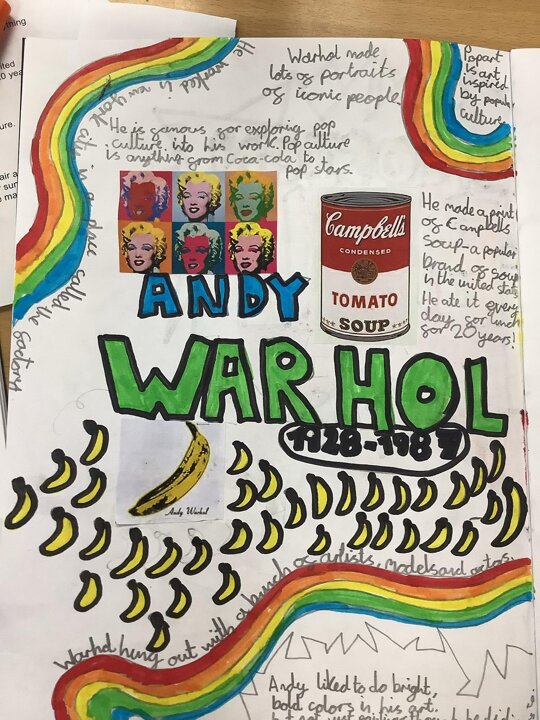 thing
ited
ure.
air a
sur
ma
He worked in new york city in a place called the factory
Warhol made
lots of portraits
of iconic people.
Popart
is art
inspired
by popular
culture.
He is famous for exploring pop
culture into his work. Pop culture
is anything from Coca-cola to
pop stars.
Campbell's
CONDENSED
TOMATO
SOUP
He made a print
of Campbells
soup-a popular
brand of soup
in the united states
He ate it every
day for lunch
for 20 years!
ANDY
WARHOL
1928-1987
Andy Warhol
Warhol hung out with a bunch of artists, models and actors.
Andy liked to do bright,
bold colors in his art.